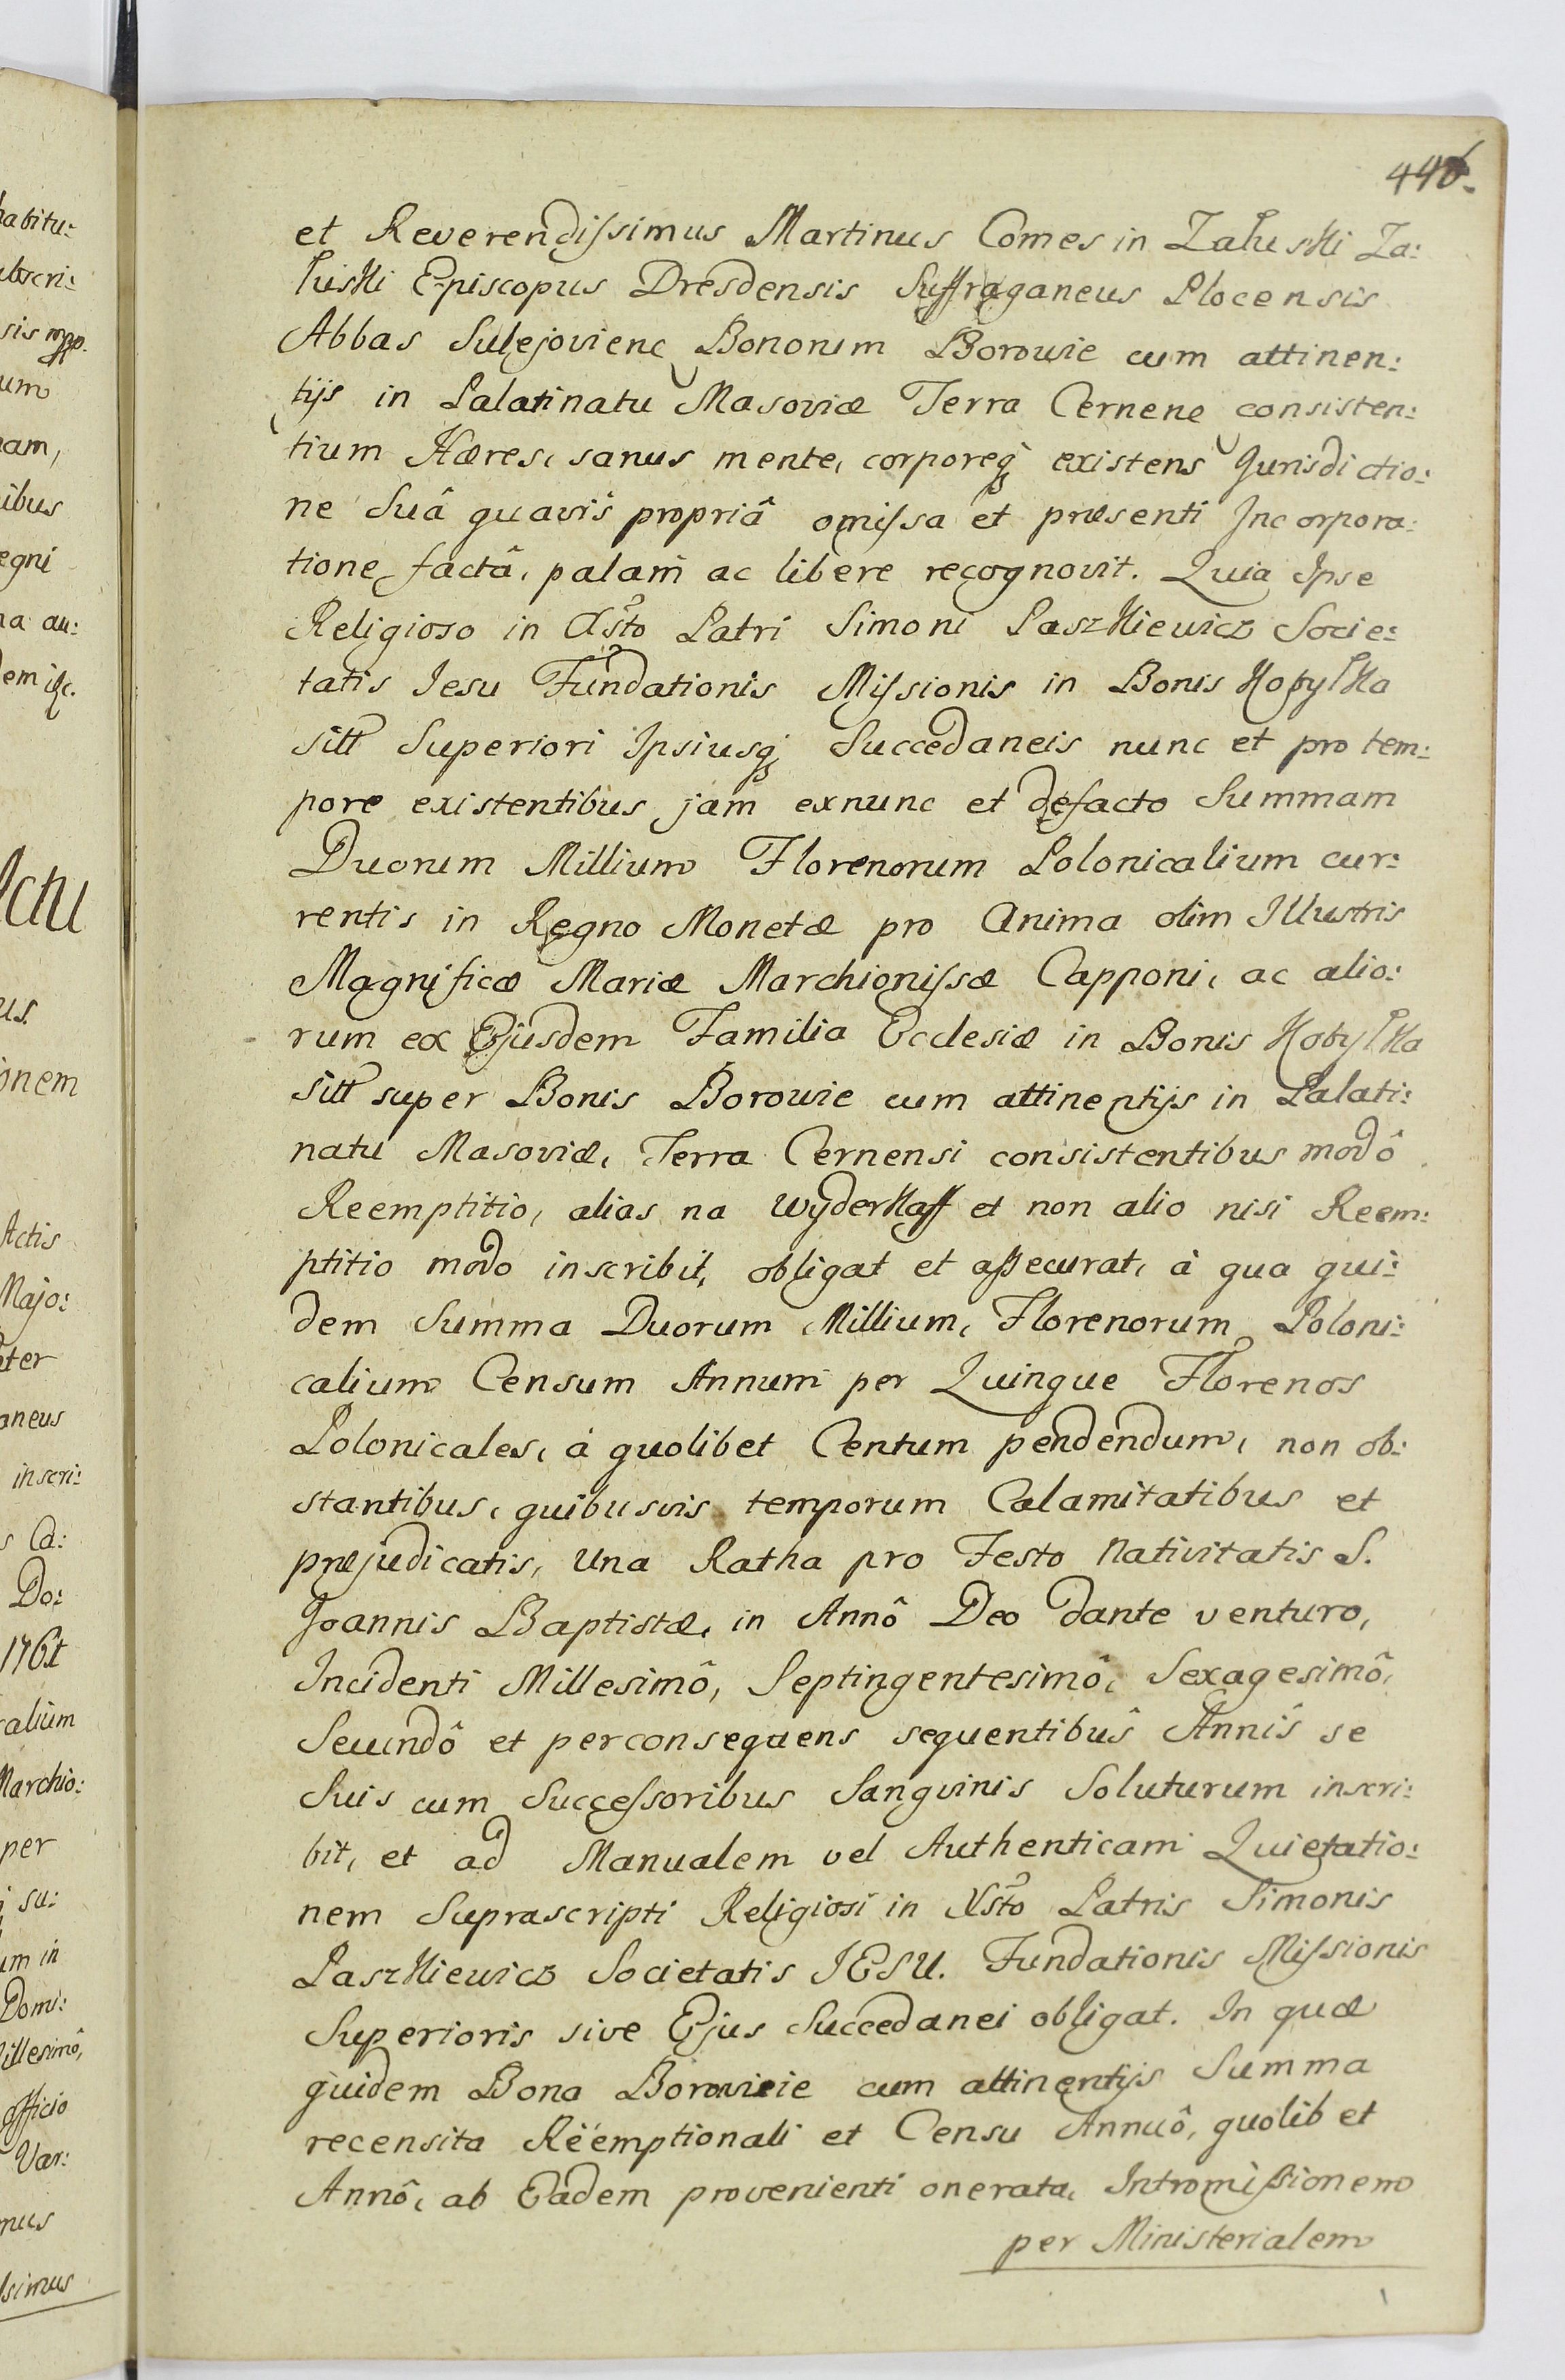 446.
et Reverendissimus Martinus Comes in Załuski Za:
łuski Episcopus Dresdensis Suffraganeus Plocensis
Abbas Sulejoviene Bonorum Borowie cum attinen:
tijs in Palatinatu Masoviæ Terra Cernene consisten:
tium Hæres, sanus mente, corporeq3 existens Jurisdictio:
ne Suâ quavis propriâ omissa et præsenti Incorpora:
tione factâ, palam ac libere recognovit. Quia Ipse
Religioso in Xsto Patri Simoni Paszkiewicz Socie:
tatis Jesu Fundationis Missionis in Bonis Kobyłka
sitt Superiori Ipsiusq3 Succedaneis nunc et pro tem:
pore existentibus jam exnunc et defacto Summam
Duorum Millium Florenorum Polonicalium cur:
rentis in Regno Monetæ pro Anima olim Illustris
Magnificæ Mariæ Marchionissæ Capponi, ac alio:
rum ex Ejusdem Familia Ecclesiæ in Bonis Kobyłka
sitt super Bonis Borowie cum attinentijs in Palati:
natu Masoviæ, Terra Cernensi consistentibus modô
Reemptitio, alias na wyderkaff et non alio nisi Reem:
ptitio modo inscribit, obligat et assecurat, à qua qui:
dem Summa Duorum Millium, Florenorum Poloni:
calium Censum Annum per Quinque Florenos
Polonicales, à quolibet Centum pendendum, non ob:
stantibus, quibusvis temporum Calamitatibus et
præjudicatis, Una Ratha pro Festo Nativitatis S.
Joannis Baptistæ, in Annô Deo dante venturo,
Incidenti Millesimô, Septingentesimô, Sexagesimô,
Secundô et perconsequens sequentibus Annis se
Suis cum Successoribus Sangvinis Soluturum inscri:
bit, et ad Manualem vel Authenticam Quietatio:
nem Suprascripti Religiosi in Xsto Patris Simonis
Paszkiewicz Societatis JESU. Fundationis Missionis
Superioris sive Ejus Succedanei obligat. In quæ
quidem Bona Borowie cum attinentijs Summa
recensita Réemptionali et Censu Annuô, quolibet
Annô, ab Eadem provenienti onerata, Intromissionem
per Ministerialem